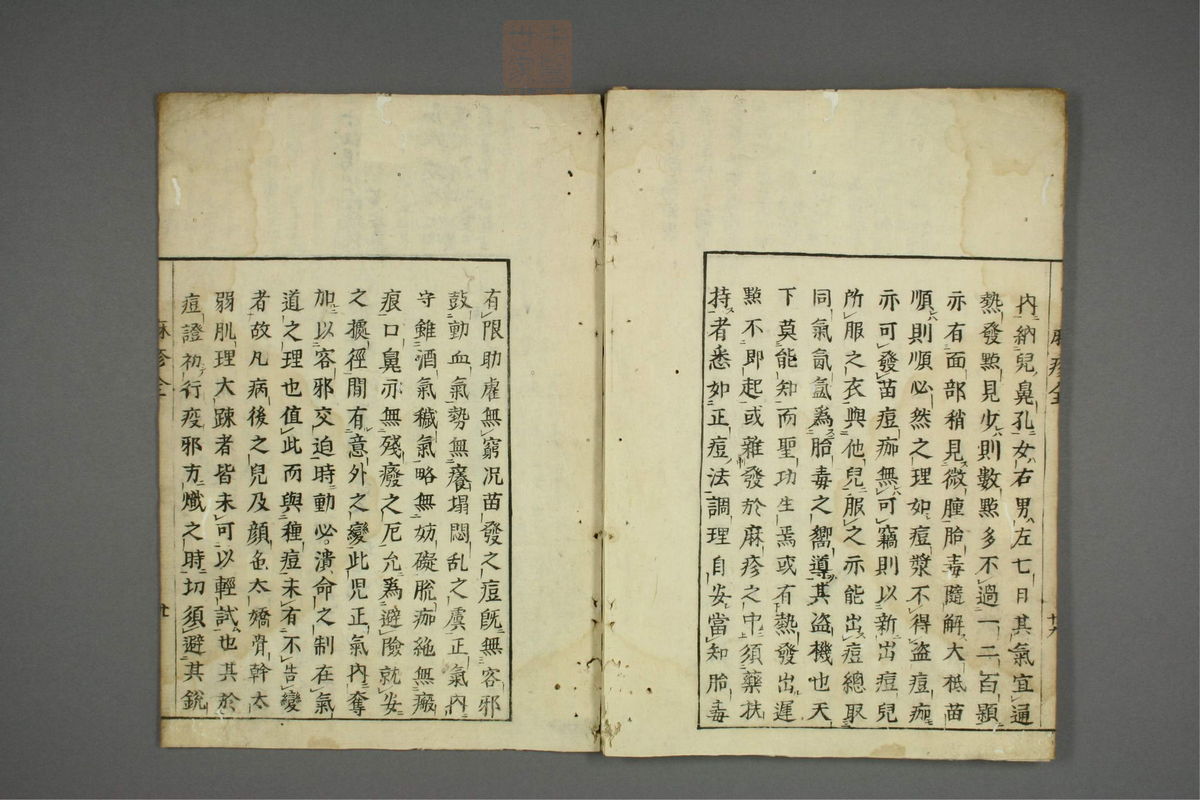 内納兒鼻孔女右男左七日其氣宜通
熱發㸃見少則數㸃多不過一二百顆
亦有面部稍見微腫胎毒隨解大柢苗
順則順必然之理如痘漿不得盗痘痂
亦可發苗痘痂無可竊則以新出痘兒
所服之衣與他兒服之亦能出痘總取
同氣氤氲爲胎毒之嚮導其盗機也天
下莫能知而聖功生焉或有熱發出遲
㸃不即起或雜發於麻疹之中須藥扶
持者悉如正痘法調理自安當知胎毒
有限助虐無窮况苗發之痘既無客邪
鼓動血氣勢無癢塌悶乱之虞正氣内
守雖酒氣穢氣略無妨礙脫痂絶無癈
痕口鼻亦無殘癈之厄允爲避險就安
之捷徑間有意外之變此児正氣内奪
加以客邪交迫時動必潰命之制在氣
道之理也值此而與種痘未有不告變
者故凡病後之兒及顔色太嬌骨幹太
弱肌理大踈者皆未可以輕試也其於
痘證初行疫邪方熾之時切須避其銳